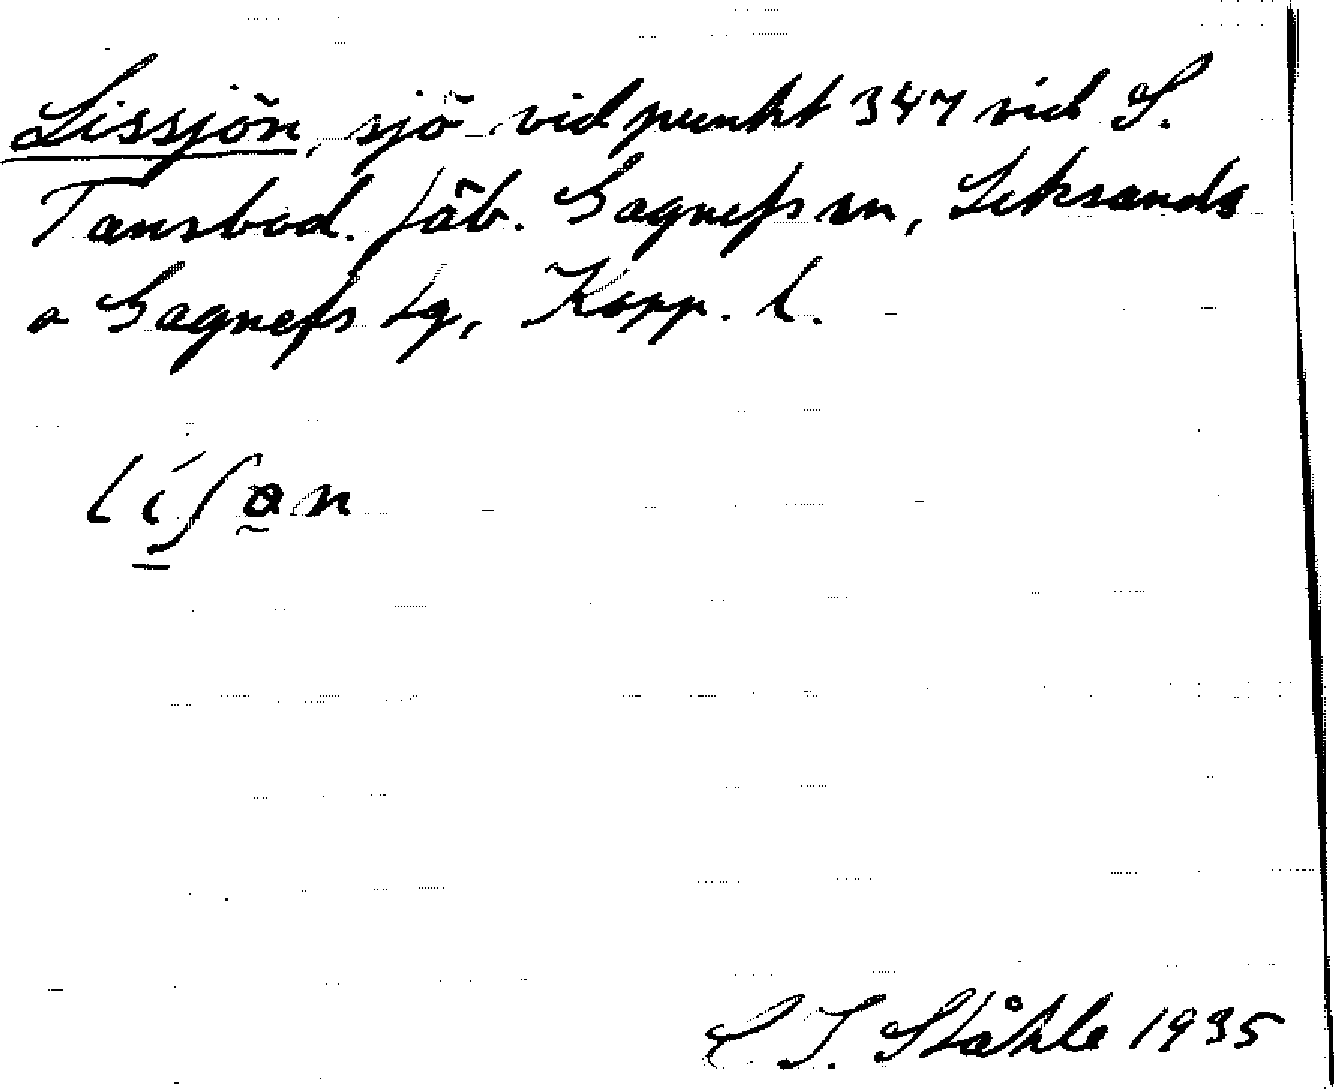 Lissjön, sjö vid punkt 347 vid S.
Tansbod. fäb. Gagnefs sn, Leksands
o Gagnefs tg, Kopp. l.
C. I. Ståhle 1935